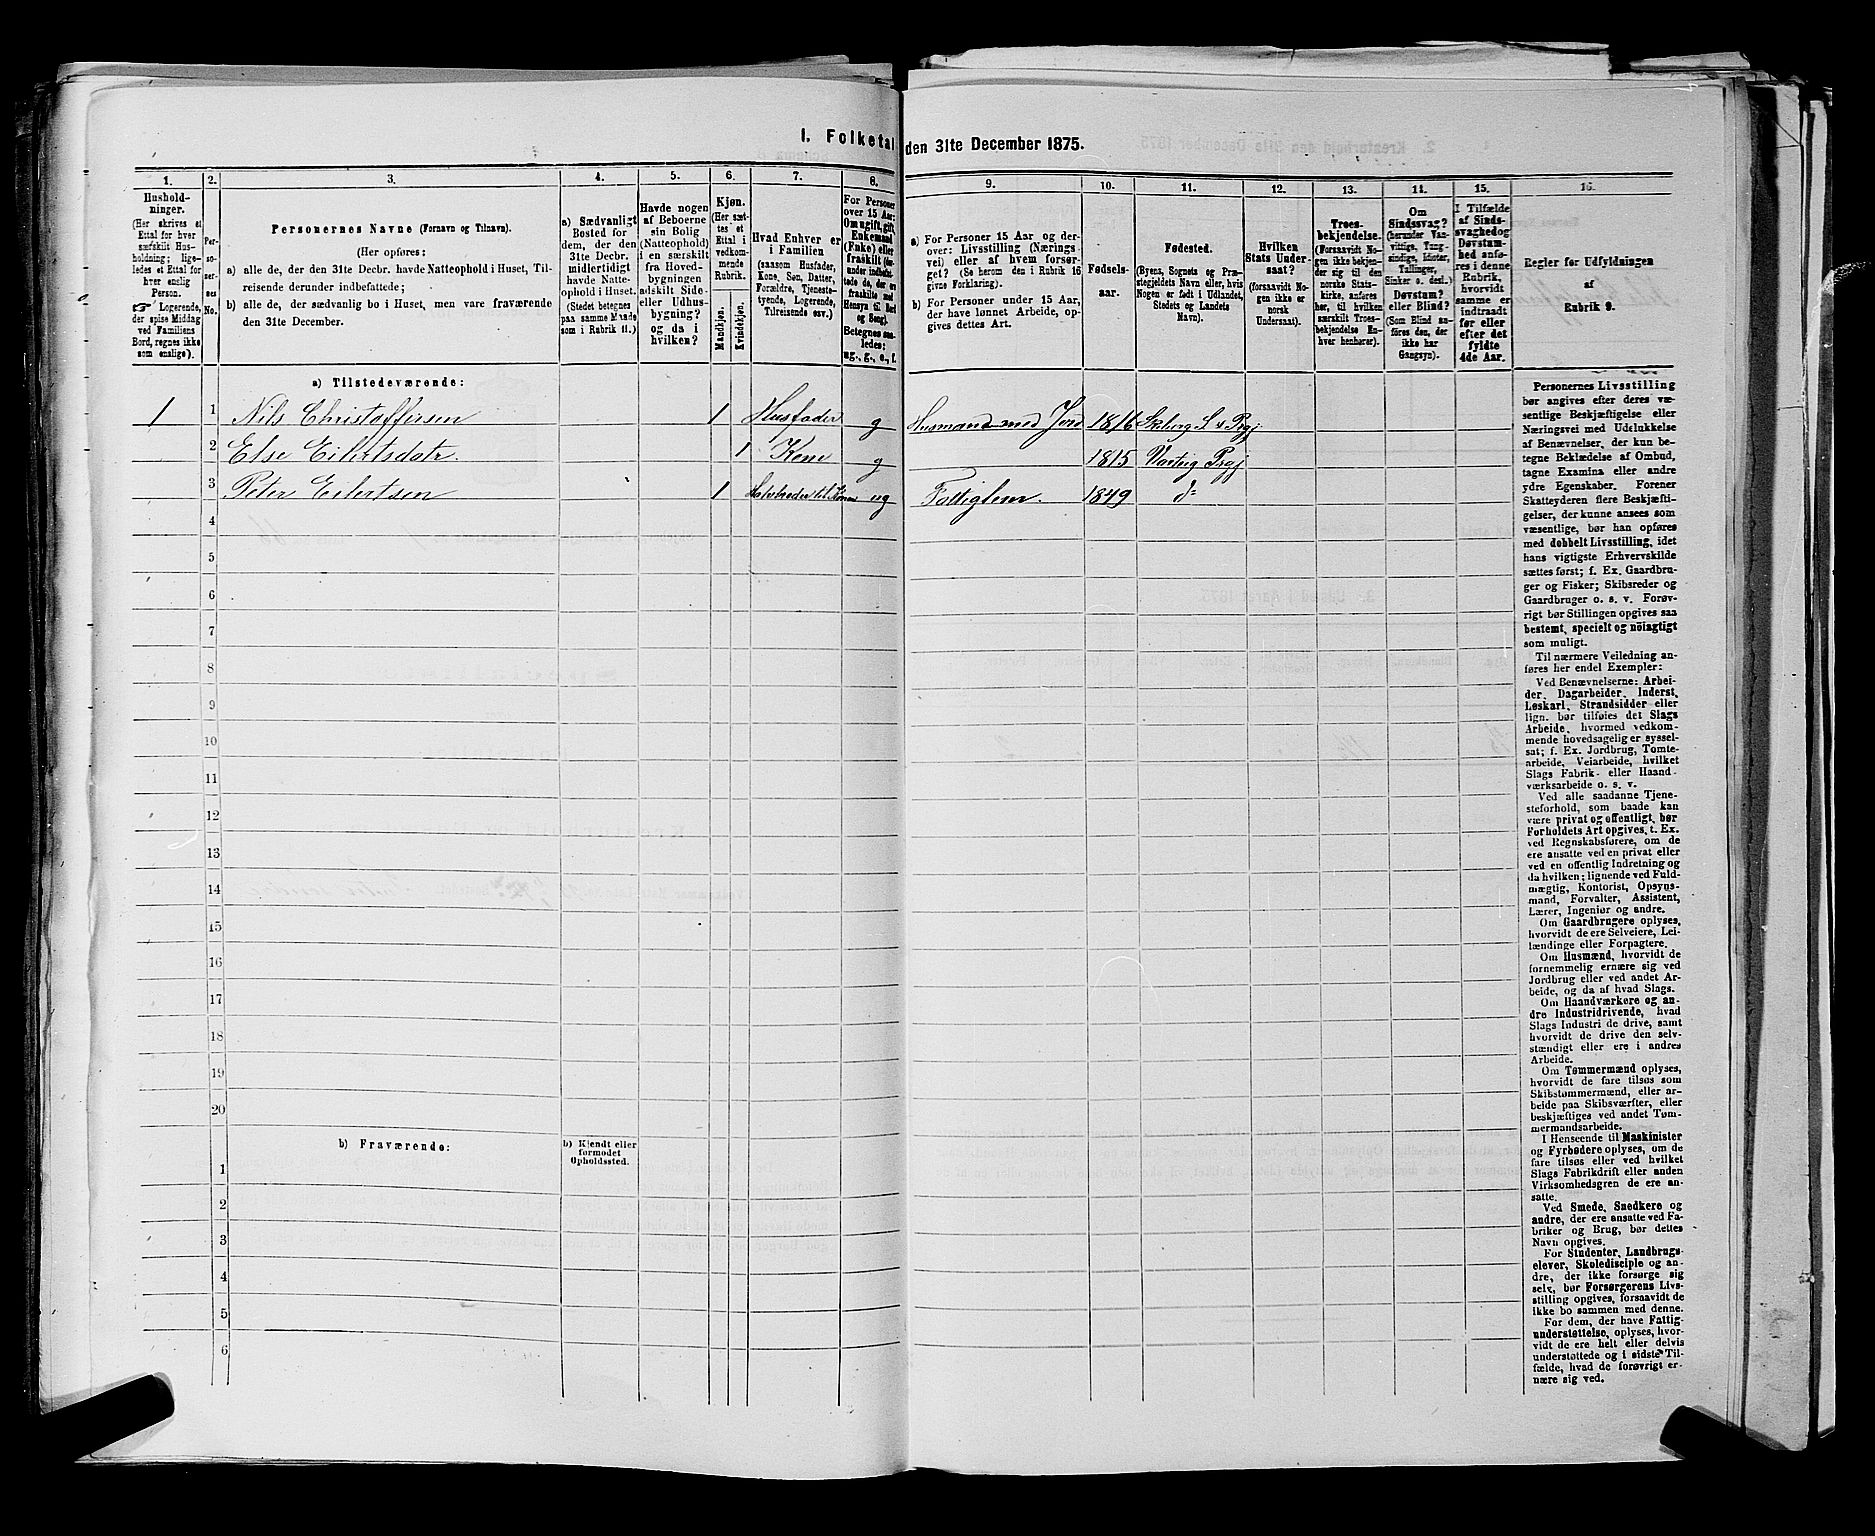 I. Folketal den 31te December 1875.
1. 2. 3. 4. 5. 6. 7. 8. 9. 10. 11. 12. 13. 14. 15. 16.
Hushold-
ninger.
(Her skrives et
Ettal for hver
særskilt Hus-
holdning; lige-
ledes et Ettal for
hver enslig
Person.
☞ Logerende,
der spise Middag
ved Familiens
Bord, regnes ikke
som enslige).
Per-
so-
ner-
nes
No.
Personernes Navne (Fornavn og Tilnavn).
(Her opføres:
a) alle de, der den 31te Decbr. havde Natteophold i Huset, Til-
reisende derunder indbefattede;
b) alle de, der sædvanlig bo i Huset, men vare fraværende
den 31te December.
a) Sædvanligt
Bosted for
dem, der den
31te Decbr.
midlertidigt
havde Natte-
ophold i Huset.
(Stedet betegnes
paa samme Maade
som i Rubrik 11.)
Havde nogen
af Beboerne
sin Bolig
(Natteophold)
i en særskilt
fra Hoved-
bygningen
adskilt Side-
eller Udhus-
bygning?
og da i
hvilken?
Kjøn.
(Her sæt-
tes et
Ettal i
vedkom-
mende
Rubrik.
Mandkjøn.
Kvindekjøn.
Hvad Enhver er
i Familien
(saasom Husfader,
Kone, Søn, Datter,
Forældre, Tjeneste-
tyende, Logerende,
Tilreisende osv.)
For Personer
over 15 Aar:
Om ugift, gift,
Enkemand
(Enke) eller
fraskilt (der-
under indbefat-
tede de, der ere
fraskilte med
Hensyn til Bord
og Seng).
Betegnes saa-
ledes:
ug., g., e., f.
a) For Personer 15 Aar og der-
over: Livsstilling (Nærings
vei) eller af hvem forsør-
get? (Se herom den i Rubrik 16
givne Forklaring).
b) For Personer under 15 Aar,
der have lønnet Arbeide, op-
gives dettes Art.
Fødsels-
aar.
Fødested.
(Byens, Sognets og Præ-
stegjeldets Navn eller, hvis
Nogen er født i Udlandet,
Stedets og Landets
Navn).
Hvilken
Stats Under-
saat?
(forsaavidt No-
gen ikke er
norsk
Undersaat).
Troes-
bekjendelse.
(Forsaavidt No-
gen ikke bekjen-
der sig til den
norske Stats-
kirke, anføres
her, til hvilken
særskilt Troes-
bekjendelse En-
hver henhører).
Om
Sindssvag?
(herunder Van-
vittige, Tung-
sindige, Idioter,
Tullinger,
Sinker o. desl.)
Døvstum?
eller Blind?
(Som Blind an-
føres den, der
ikke har
Gangsyn).
I Tilfælde
af Sinds-
svaghed og
Døvstum-
hed anfø-
res i denne
Rubrik,
hvorvidt
samme er
indtraadt
før eller
efter det
fyldte
4de Aar.
Regler for Udfyldningen
af
Rubrik 9.
a) Tilstedeværende:
1 1 Nils Christoffersen 1 Husfader g Husmand med Jord 1816 Skberg S. & Prgj
2 Else Eilertsdatr. 1 Kone g 1815 Varteig Prgj
3 Peter Eilertsen 1 Halvbroder til Konen ug Fattiglem. 1849 d=
4
5
6
7
8
9
10
11
12
13
14
15
16
17
18
19
20
b) Fraværende:
b) Kjendt eller
formodet
Opholdssted.
1
2
3
4
5
6
Personernes Livsstilling
bør angives efter deres væ-
sentlige Beskjæftigelse eller
Næringsvei med Udelukkelse
af Benævnelser, der kun be-
tegne Beklædelse af Ombud,
tagne Examina eller andre
ydre Egenskaber. Forener
Skatteyderen flere Beskjæfti-
gelser, der kunne ansees som
væsentlige, bør han opføres
med dobbelt Livsstilling, idet
hans vigtigste Erhvervskilde
sættes først; f. Ex. Gaardbru-
ger og Fisker; Skibsreder og
Gaardbruger o. s. v. Forøv-
rigt bør Stillingen opgives saa
bestemt, specielt og nöiagtigt
som muligt.
Til nærmere Veiledning an-
føres her endel Exempler:
Ved Benævnelserne: Arbei-
der, Dagarbeider, Inderst,
Løskarl, Strandsidder eller
lign. bør tilføies det Slags
Arbeide, hvormed vedkom-
mende hovedsagelig er syssel-
sat; f. Ex. Jordbrug, Tomte-
arbeide, Veiarbeide, hvilket
Slags Fabrik- eller Haand-
værksarbeide o. s. v.
Ved alle saadanne Tjene-
steforhold, som baade kan
være privat og offentligt, bør
Forholdets Art opgives, t. Ex.
ved Regnskabsførere, om de
ere ansatte ved en privat eller
ved en offentlig Indretning og
da hvilken; lignende ved Fuld-
mægtig, Kontorist, Opsyns-
mand, Forvalter, Assistent,
Lærer, Ingeniør og andre.
Om Gaardbrugere oplyses,
hvorvidt de ere Selveiere, Lei-
lændinge eller Forpagtere.
Om Husmænd, hvorvidt de
fornemmelig ernære sig ved
Jordbrug eller ved andet Ar-
beide, og da af hvad Slags.
Om Haandværkere og an-
dre Industridrivende, hvad
Slags Industri de drive, samt
hvorvidt de drive den selv-
stændigt eller ere i andres
Arbeide.
Om Tømmermænd oplyses,
hvorvidt de fare tilsøs som
Skibstømmermænd, eller ar-
beide paa Skibsværfter, eller
beskjæftiges ved andet Tøm-
mermandsarbeide.
I Henseende til Maskinister
og Fyrbødere oplyses, om de
fare tilsøs eller ved hvilket
Slags Fabrikdrift eller anden
Virksomhedsgren de ere an-
satte.
Ved Smede, Snedkere og
andre, der ere ansatte ved Fa-
briker og Brug, bør dettes
Navn opgives.
For Studenter, Landbrugs-
elever, Skoledisciple og an-
dre, der ikke forsørge sig
selv, bør Forsørgerens Livs-
stilling opgives, forsaavidt de
ikke bo sammen med denne.
For dem, der have Fattig-
understøttelse, oplyses, hvor-
vidt de ere helt eller delvis
understøttede og i sidste Til-
fælde, hvad de forøvrigt er-
nære sig ved.